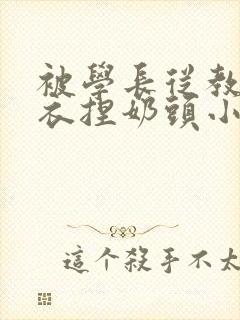 被學長從教
衣捏奶頭小
這个殺手不太